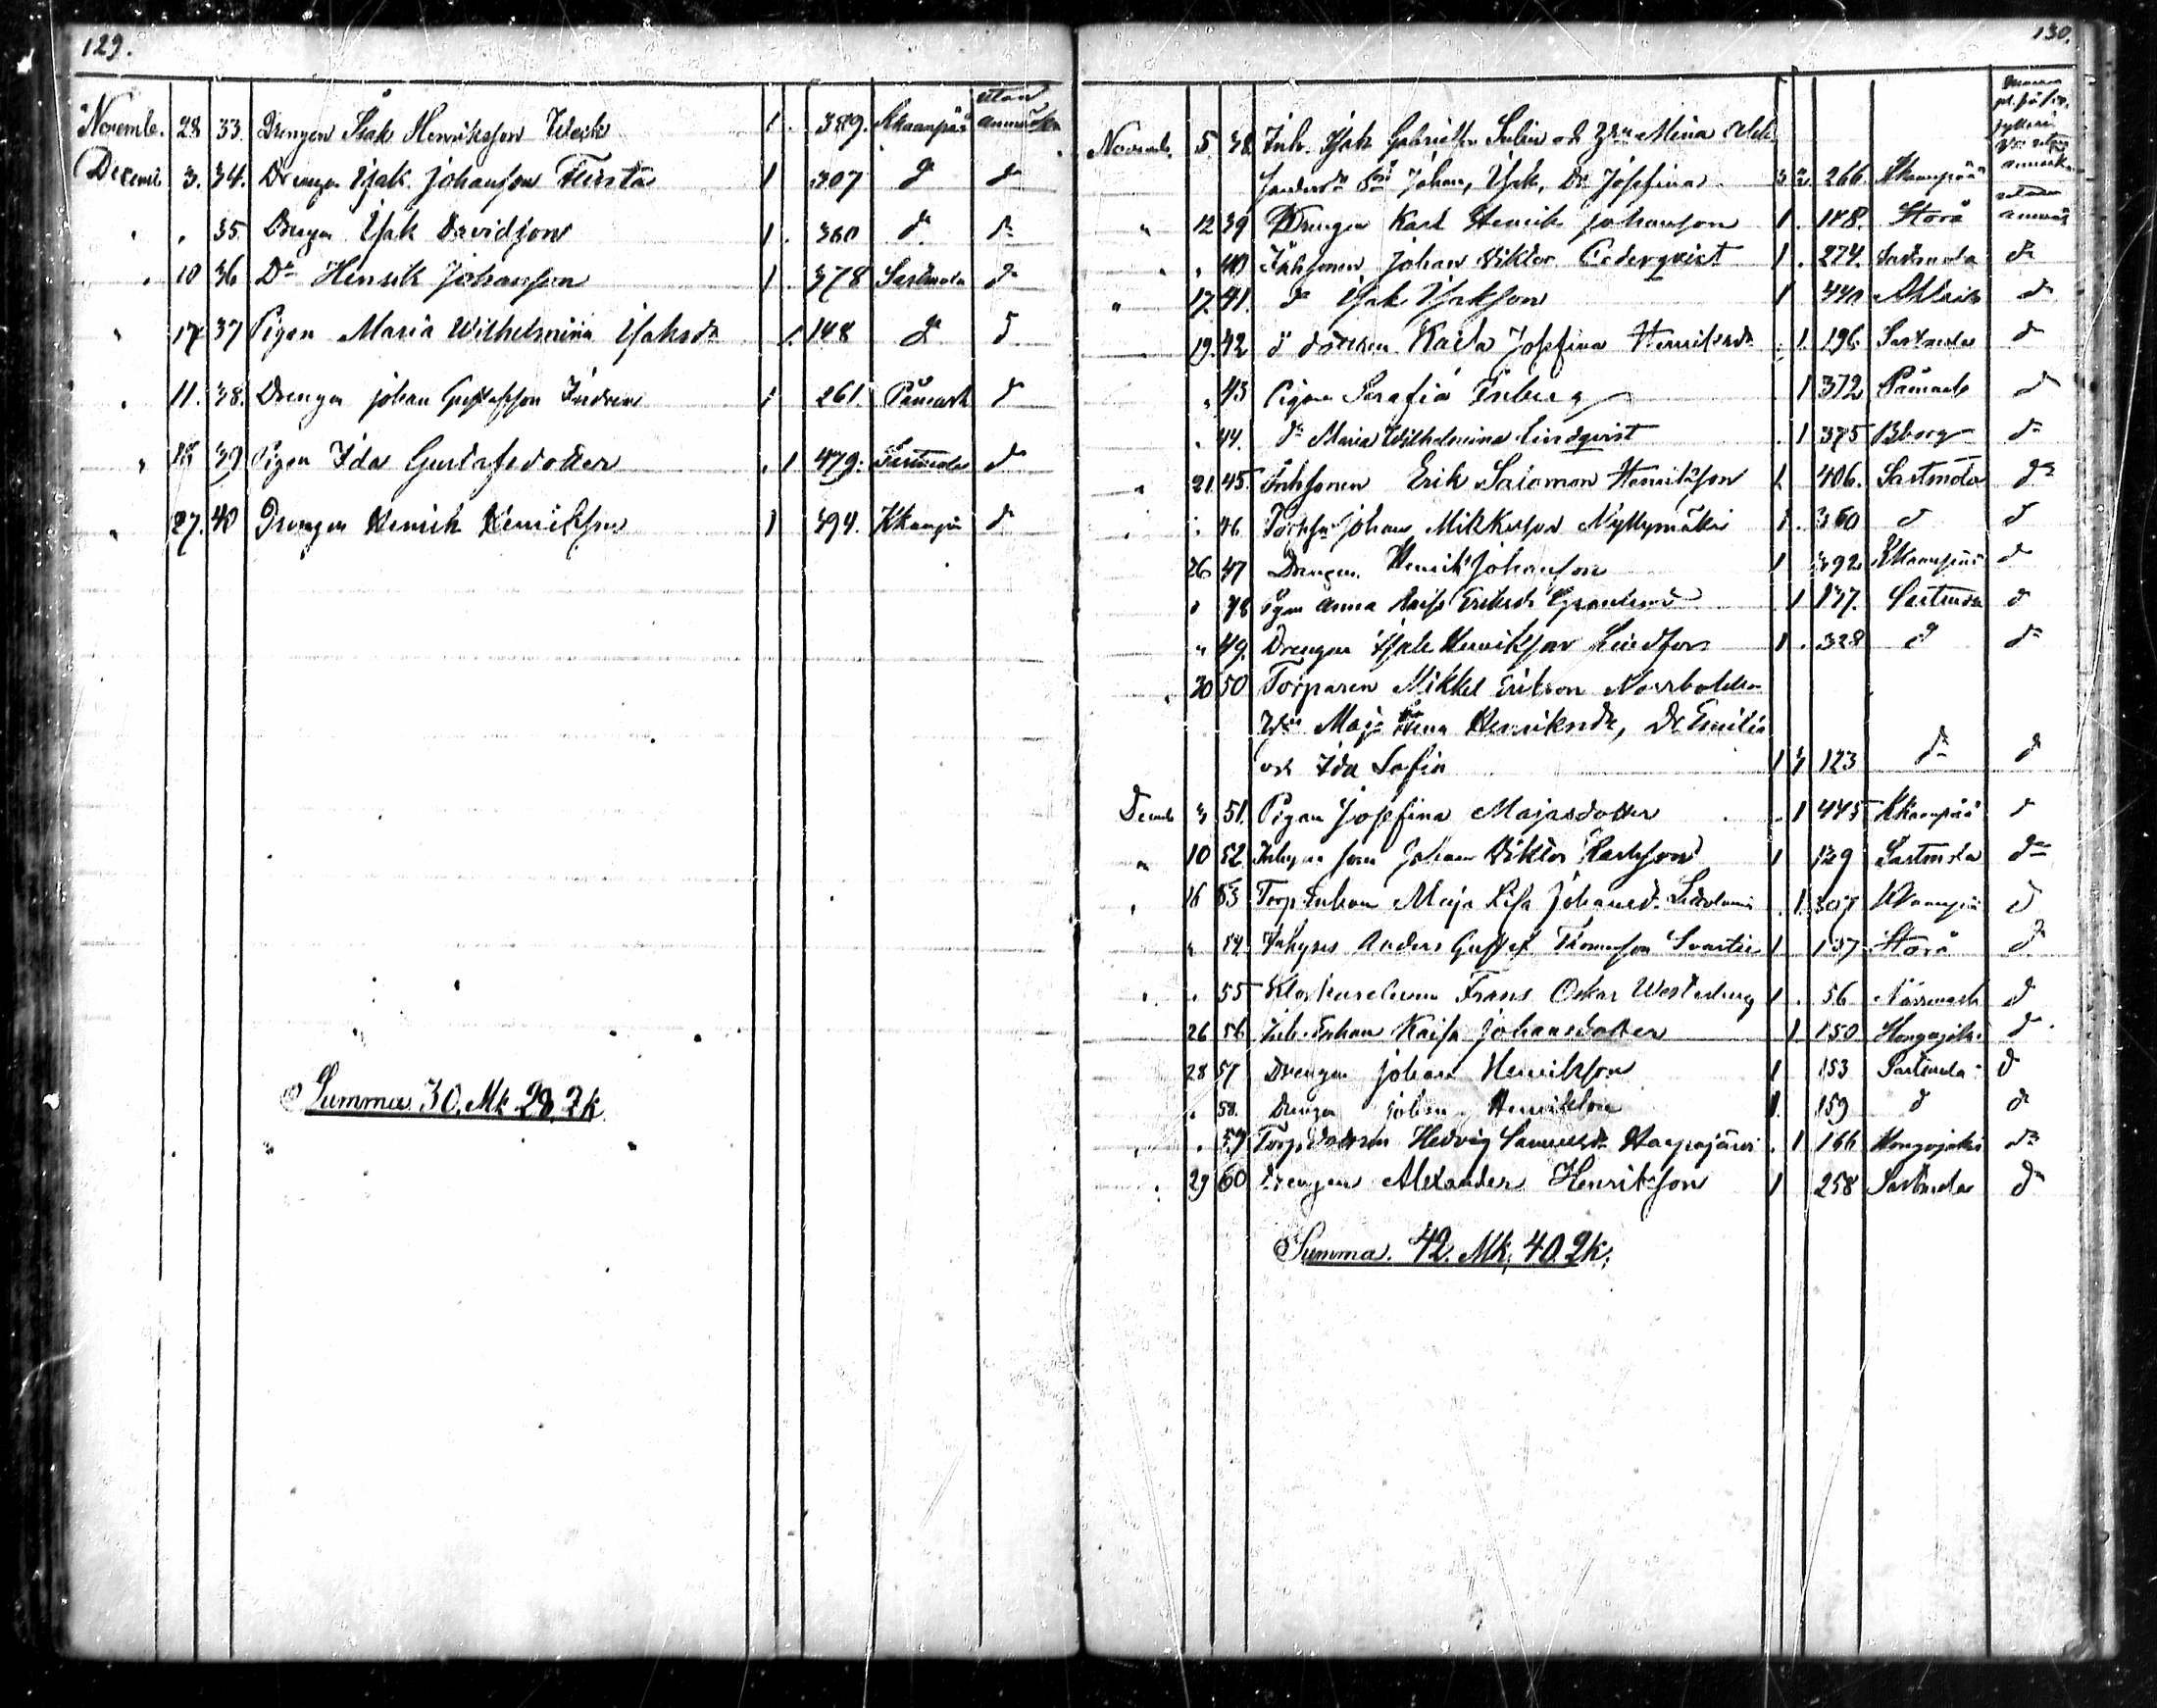 129.
utan
Novemb. 28 33. Drengen Isak Henriksson 1. 389. Kkaanpää anmärkn
Decemb 3. 34. Drengen Isak Johansson Fursta 1 307 d d
" " 35. Drengen Isak Davidsson 1. 360 d d
" 10 36 Dn Henrik Johansson 1. 378 Sastmola d
" 17 37 Pigan Maria Wilhelmina Isaksdr 1. 148 d d
" 11. 38. Drengen Johan Gustafsson 1 261. Påmark d
" 18 39 Pigan Ida Gustafsdotter . 1 479. Sastmola d
" 27. 40 Drengen Henrik Henriksson 1 494. Kkaanpä d
Summa 30. Mk. 28. Qk.
130.
Novemb. 5. 38. Inh. Isak Gabrielsson och Hu Mina
Johan, Isak, Dr Josefina 3 2. 266. Kkaanpää anmärk
utan
" 12 39 Drengen Karl Henrik Johansson 1. 178. Storå anmärk
" " 40 Inhsonen Johan Viktor Cederqvist 1. 274. Sastmola d
" 17. 41. d Isak Isaksson 1 440 d
19. 42 d dottren Kaisa Josefina Henriksdr . 1. 196 Sastmola d
" 43 Pigan Serafia 1 372 Påmark d
" 44. dn Maria Wilhelmina Lindqvist . 1 375 Bborg d
" 21. 45. Inhsonen Erik Salomon Henriksson 1. 406. Sastmola d
" " 46. Johan Mikkelsson Myllymäki 1. 360 d d
26 47 Drengen Henrik Johansson 1 392 Kkaanpää d
" 48 Pigan Anna Kaisa Eriksdr Granlund . 1 137. Sastmola d
" 49. Drengen Isak Henriksson Lindfors 1 . 328 d d
" 30 50 Torparen Mikkel Eriksson
Maja Stina Henriksdr, Dr Emilia
och Ida Sofia 1 3 123 d d
Decemb 3 51. Pigan Josefina Majasdotter . . 1 445 Kkaanpää d
" 10 52. Inhyses son Johan Viktor Karlsson 1 129 Sastmola d
" 16 53 Torp Enkan Maja Lisa Johansd. . 1. 307 Kkaanpä d
" 54. Inhyses Anders Gustaf Thomasson 1. 157 Storå d
" " 55 Frans Oskar Westerberg 1 . 56 d
26 56 Inh. Enkan Kaisa Johansdotter 1. 150. Hongojoki d
28 57 Drengen Johan Henriksson 1 153 Sastmola d
" 58. Drengen Johan Henriksson 1. 159 d d
" " 59 Torp dottren Hedvig Samuelsdr Haapajärvi . 1 166 Hongojoki d
" 29 60 Drengen Alexander Henriksson 1 258 Sastmola d
Summa. 42. Mk. 40. Qk.